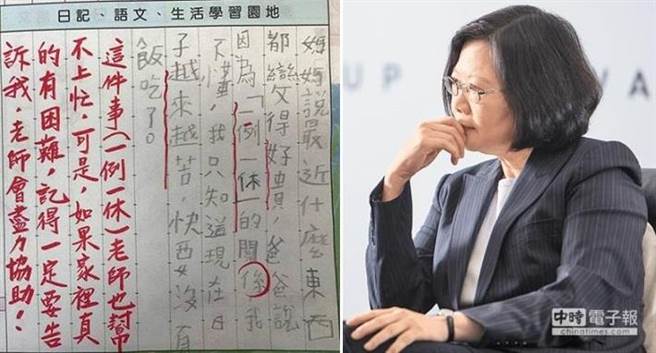 日記、語文、生活學習園地
媽媽說最近什麼東西
都變得好貴,爸爸說
因為「一例一休」的關係我
不懂,我只知道現在日
子越來越苦,快要沒有
飯吃了。
這件事(一例一休)老師也幫
不上忙,可是,如果家裡真
的有困難,記得一定要告
訴我,老師會盡力協助!
UP
VA
中時電子報
chinatimes.com